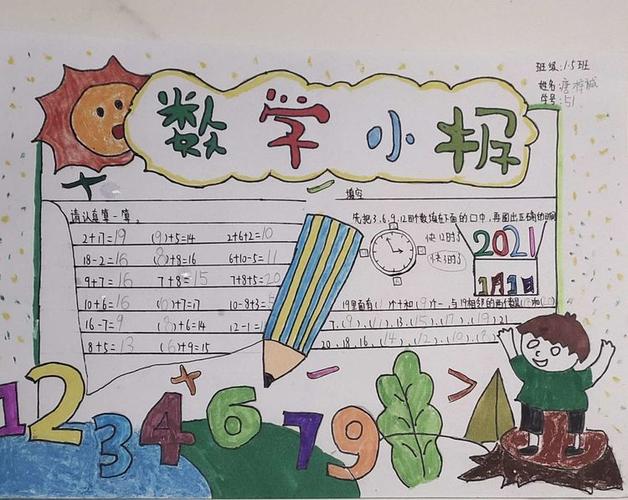 班级:1.5班
姓名:唐梓城
学号:51
数学小报
填空
请认真算一算。
先把3、6、9、12四个数填在下面的口中,再圈出正确的时间
2+17=19 (9)+5=14 2+6+2=10
18-2=16 (8)+8=16 6+10-5=11
9+7=16 7+8=15 7+8+5=20
10+6=16 (10)+7=17 10-8+3=5
16-7=9 (8)+6=14 12-1=1
8+5=13 (6)+9=15
快12时了
快3时了
2021
1月1日
19里面有(1)个十和(9)个一,与19相邻的两个数是
7、(9)、11、13、(15)、(17)、(19)、21
20、18、16、(14)、(12)、(10)、8
1 2 3 4 6 7 9
+ - >